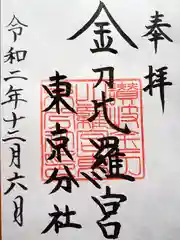 奉拝
金刀比羅宮
東京分社
令和二年十二月六日